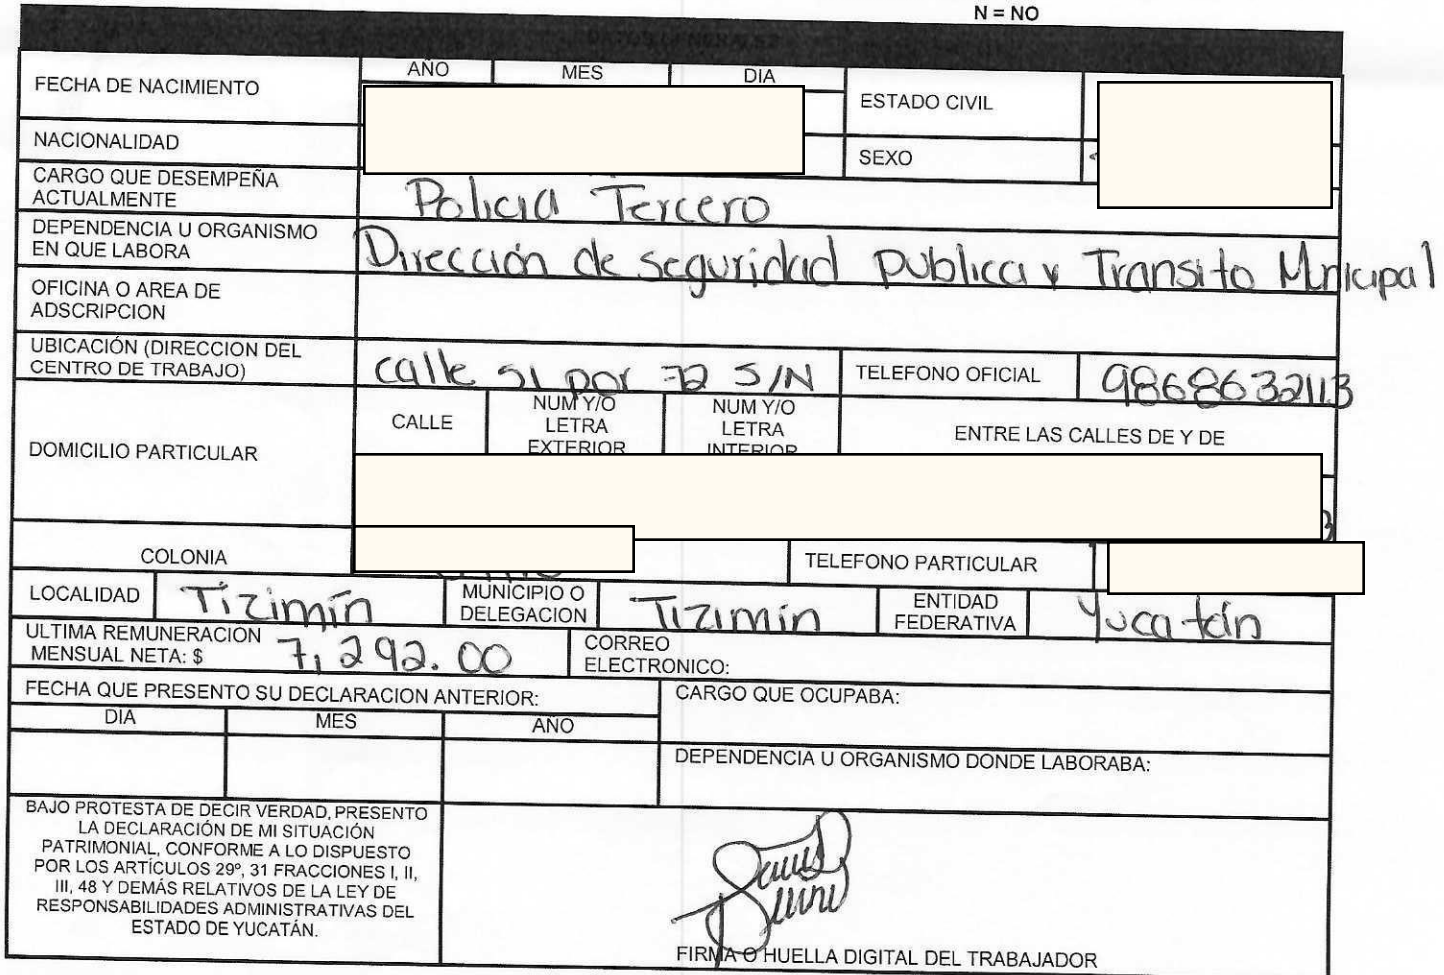 N = NO
DATOS GENERALES
FECHA DE NACIMIENTO AÑO MES DIA ESTADO CIVIL
NACIONALIDAD SEXO
CARGO QUE DESEMPEÑA
ACTUALMENTE Policia Tercero
DEPENDENCIA U ORGANISMO
EN QUE LABORA Dirección de seguridad publica y Transito Municipal
OFICINA O AREA DE
ADSCRIPCION
UBICACIÓN (DIRECCION DEL
CENTRO DE TRABAJO) calle 51 por 72 S/N TELEFONO OFICIAL 9868632113
DOMICILIO PARTICULAR CALLE NUM Y/O
LETRA
EXTERIOR NUM Y/O
LETRA
INTERIOR ENTRE LAS CALLES DE Y DE
COLONIA TELEFONO PARTICULAR
LOCALIDAD Tizimín MUNICIPIO O
DELEGACION Tizimín ENTIDAD
FEDERATIVA Yucatán
ULTIMA REMUNERACION
MENSUAL NETA: $ 7,292.00 CORREO
ELECTRONICO:
FECHA QUE PRESENTO SU DECLARACION ANTERIOR: CARGO QUE OCUPABA:
DIA MES AÑO
DEPENDENCIA U ORGANISMO DONDE LABORABA:
BAJO PROTESTA DE DECIR VERDAD, PRESENTO
LA DECLARACIÓN DE MI SITUACIÓN
PATRIMONIAL, CONFORME A LO DISPUESTO
POR LOS ARTÍCULOS 29º, 31 FRACCIONES I, II,
III, 48 Y DEMÁS RELATIVOS DE LA LEY DE
RESPONSABILIDADES ADMINISTRATIVAS DEL
ESTADO DE YUCATÁN.
FIRMA O HUELLA DIGITAL DEL TRABAJADOR